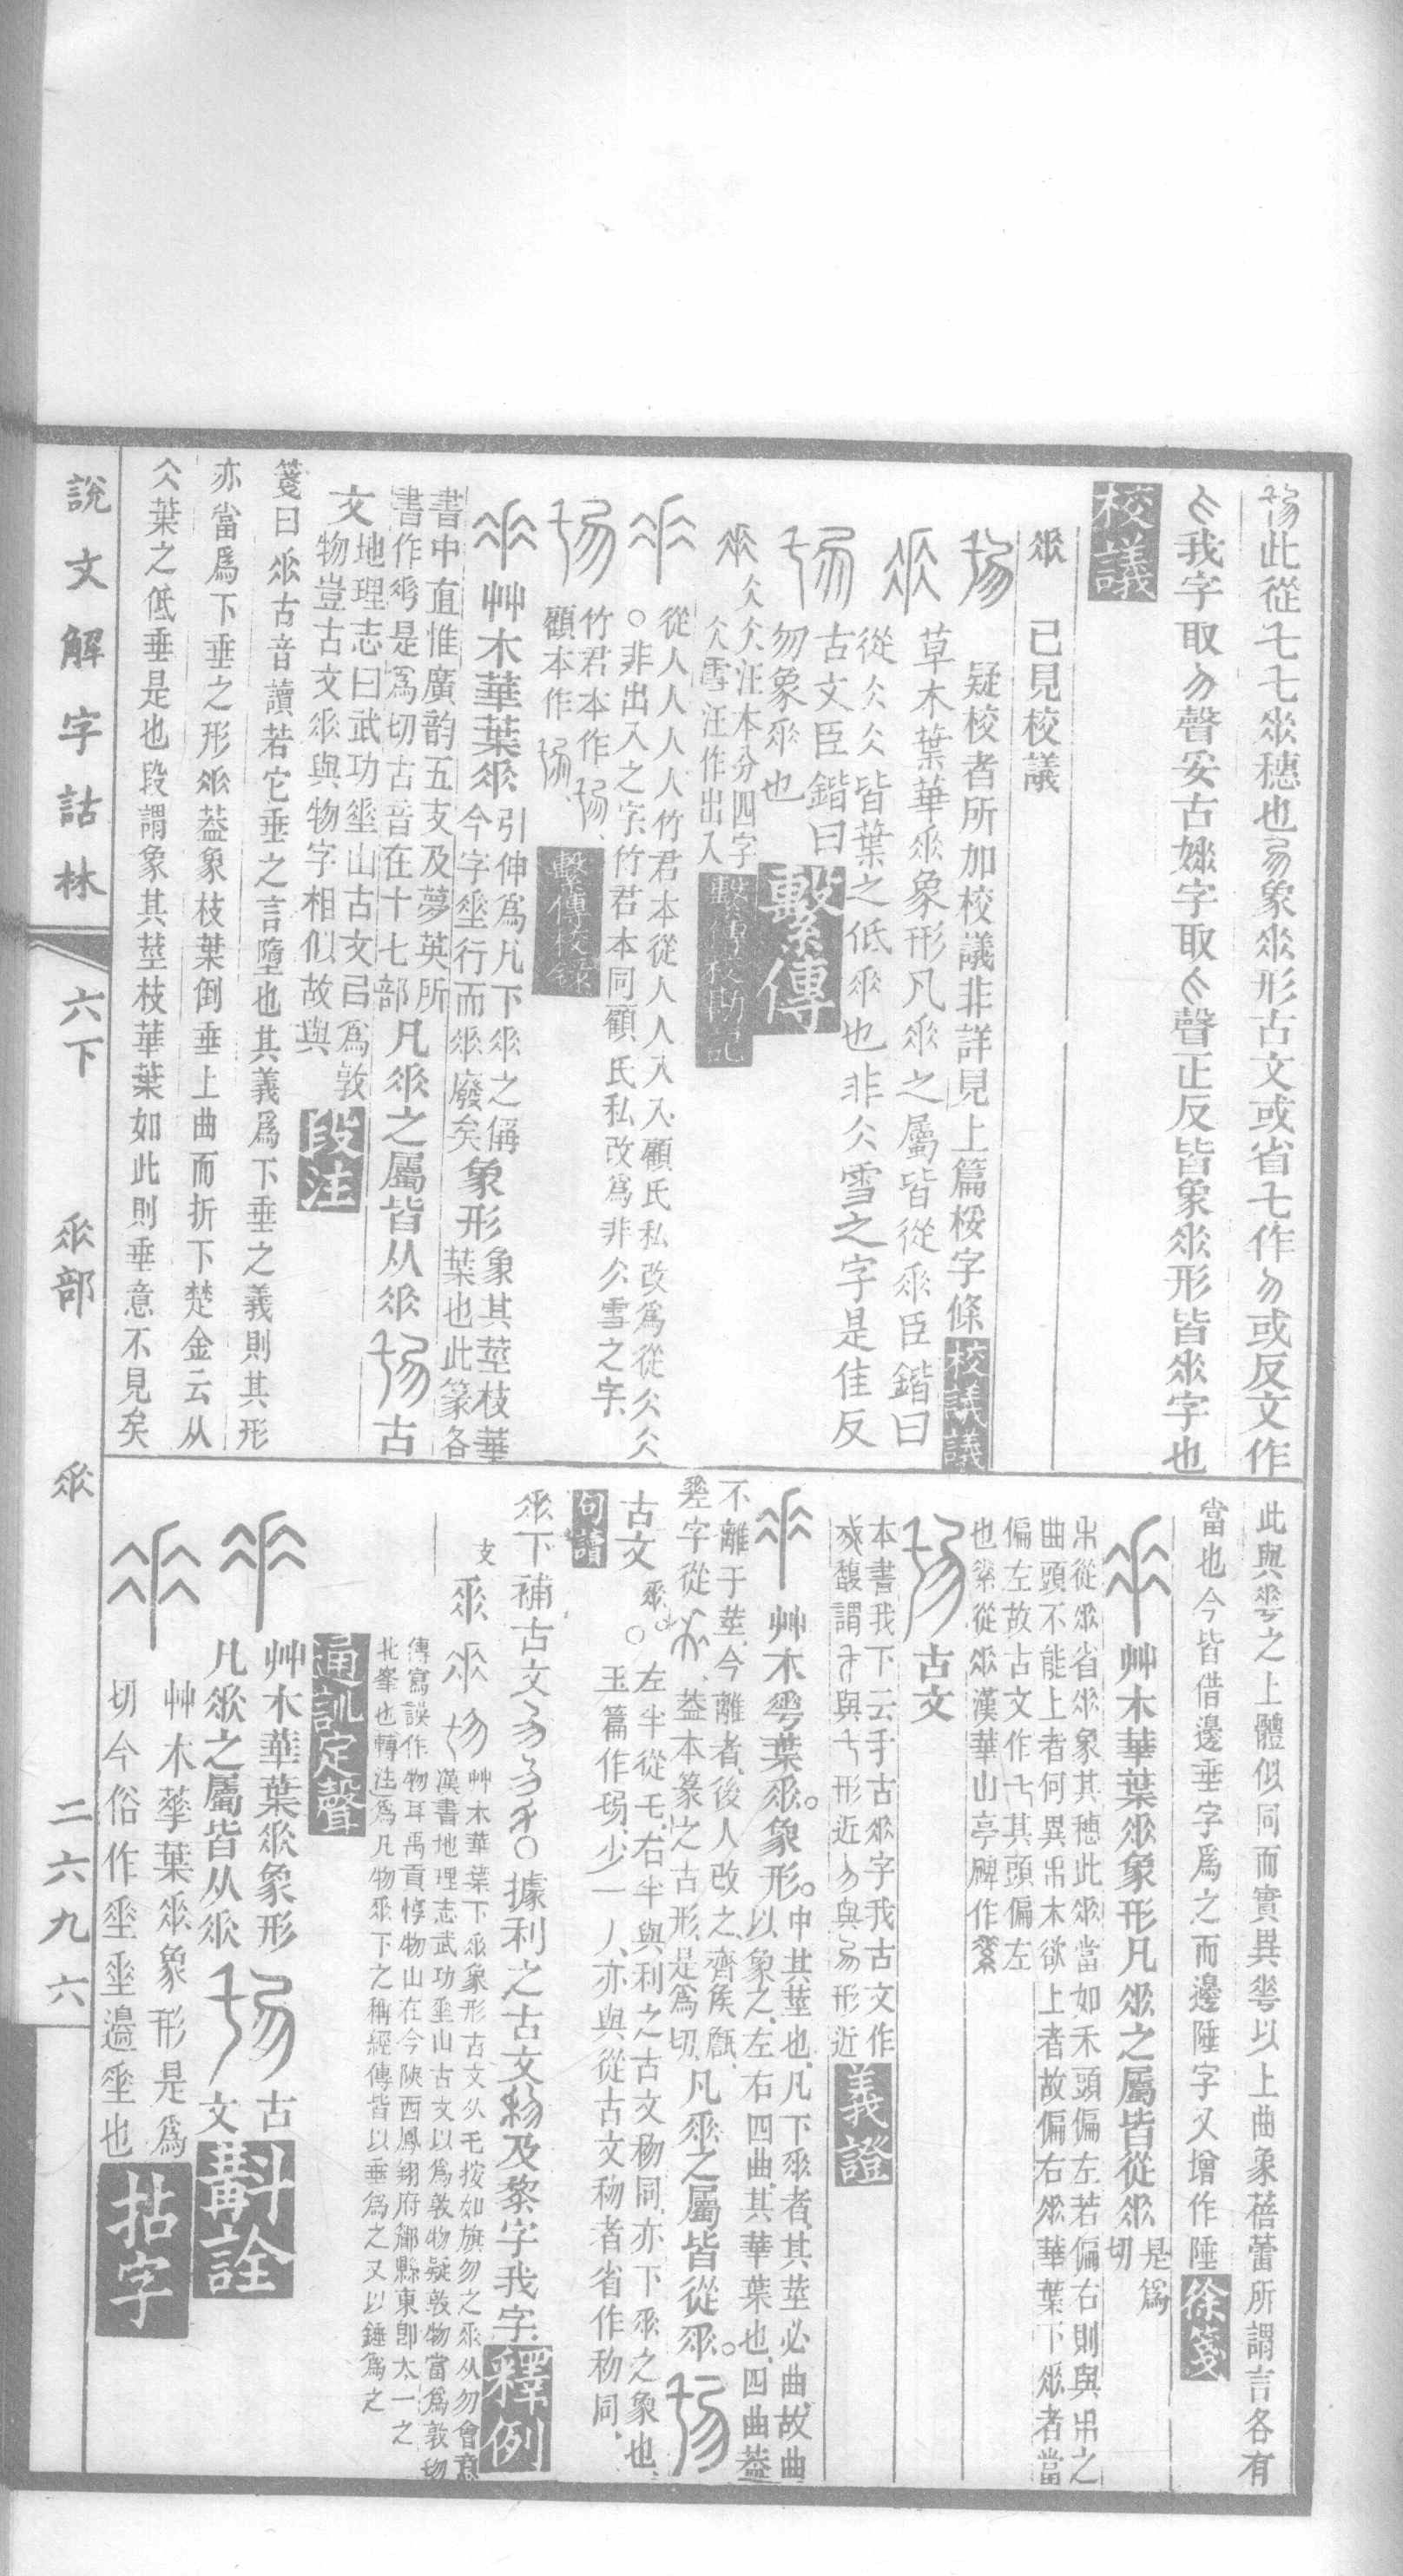 此從乇七𠂹穗也象𠂹形古文或省七作勿或反文作
我字取勿聲妥古字取聲正反皆象𠂹形皆𠂹字也
校議
𠂹 已見校議
疑校者所加校議非詳見上篇桵字條 校議議
草木葉華𠂹象形凡𠂹之屬皆從𠂹臣鍇曰
從仌仌皆葉之低𠂹也非仌雪之字是隹反
古文臣鍇曰
勿象𠂹也
繫傳
𠂹 仌仌汪本分四字
仌雪汪作出入
繫傳校勘記
從人人人人竹君本從人人入入顧氏私改爲從仌仌
○非出入之字竹君本同顧氏私改爲非仌雪之字
竹君本作
顧本作
繫傳校錄
艸木華葉𠂹 引伸爲凡下𠂹之偁
今字垂行而𠂹廢矣 象形 象其莖枝華
葉也此篆各
書中直惟廣韵五支及夢英所
書作𠂹是爲切古音在十七部 凡𠂹之屬皆从𠂹 古
文 地理志曰武功垂山古文㠯爲敦
物豈古文𠂹與物字相似故與 段注
箋曰𠂹古音讀若它垂之言墮也其義爲下垂之義則其形
亦當爲下垂之形𠂹葢象枝葉倒垂上曲而折下楚金云从
仌葉之低垂是也段謂象其莖枝華葉如此則垂意不見矣
說文解字詁林 六下 𠂹部 𠂹 二六九六
此與𠌶之上體似同而實異𠌶以上曲象蓓蕾所謂言各有
當也今皆借邊垂字爲之而邊陲字又增作陲 徐箋
艸木華葉𠂹象形凡𠂹之屬皆從𠂹 是爲
切
從𠂹省𠂹象其穗此𠂹當如禾頭偏左若偏右則與之
曲頭不能上者何異木欲上者故偏右𠂹華葉下𠂹者當
偏左故古文作其頭偏左
也從𠂹漢華山亭碑作
古文
本書我下云手古𠂹字我古文作
馥謂與形近勿與形近 義證
艸木𠌶葉𠂹。象形。 中其莖也、凡下𠂹者、其莖必曲、故曲
以象之、左右四曲、其華葉也、四曲葢
不離于莖、今離者、後人改之、齊侯甔、
字從、葢本篆之古形、是爲切、 凡𠂹之屬皆從𠂹。
古文 𠂹。○左半從乇、右半與利之古文𥝢同、亦下𠂹之象也、
玉篇作、少一丿、亦與從古文𥝢者省作𥝢同、
句讀
𠂹下補古文○據利之古文及黎字我字、 釋例
支 𠂹 艸木華葉下𠂹象形古文从乇按如旗勿之𠂹从勿會意
漢書地理志武功垂山古文以爲敦物疑敦物當爲敦
傳寫誤作物耳禹貢惇物山在今陝西鳳翔府郿縣東卽太一之
北峯也轉注爲凡物𠂹下之稱經傳皆以垂爲之又以錘爲之
通訓定聲
艸木華葉𠂹象形 古
凡𠂹之屬皆从𠂹 文 斠詮
艸木華葉𠂹象形是爲
切今俗作垂垂邊垂也 拈字